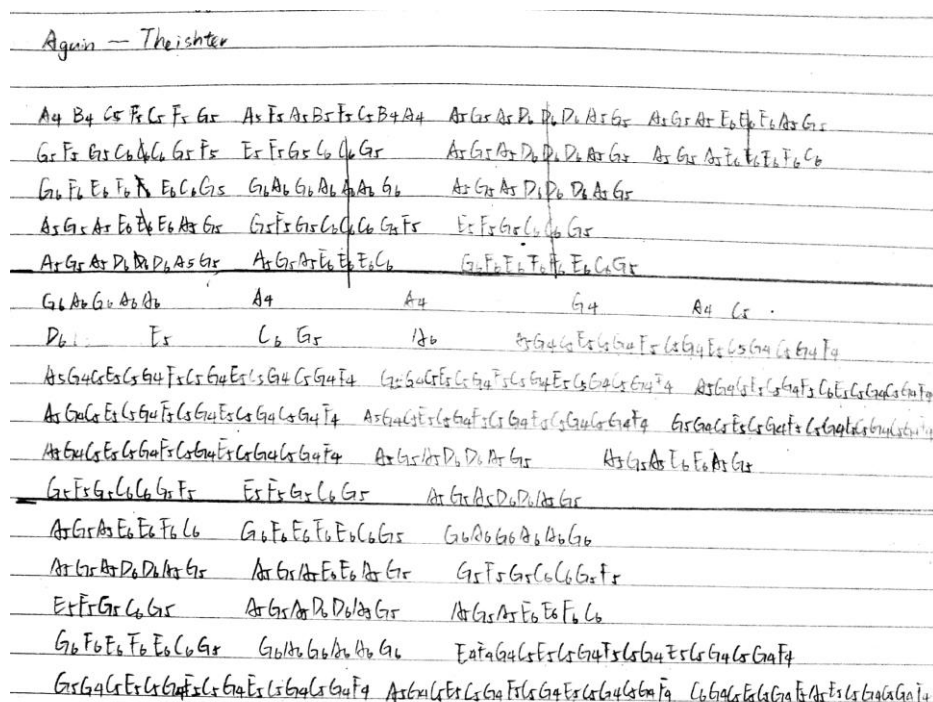 Again — Theishter
A4 B4 C5 F5 C5 F5 G5 A5 F5 A5 B5 F5 C5 B4 A4 A5 G5 A5 D6 D6 D6 A5 G5 A5 G5 A5 E6 E6 E6 A5 G5
G5 F5 G5 C6 C6 C6 G5 F5 E5 F5 G5 C6 C6 G5 A5 G5 A5 D6 D6 D6 A5 G5 A5 G5 A5 E6 E6 E6 F6 C6
G6 F6 E6 F6 E6 C6 G5 G6 A6 G6 A6 A6 A6 G6 A5 G5 A5 D6 D6 D6 A5 G5
A5 G5 A5 E6 E6 E6 A5 G5 G5 F5 G5 C6 C6 C6 G5 F5 E5 F5 G5 C6 C6 G5
A5 G5 A5 D6 D6 D6 A5 G5 A5 G5 A5 E6 E6 E6 C6 G6 F6 E6 F6 F6 E6 C6 G5
G6 A6 G6 A6 A6 A4 A4 G4 A4 C5
D6 E5 C6 G5 A6 A5 G4 C5 E5 C5 G4 F5 C5 G4 E5 C5 G4 C5 G4 F4
A5 G4 C5 E5 C5 G4 F5 C5 G4 E5 C5 G4 C5 G4 F4 G5 G4 C5 E5 C5 G4 F5 C5 G4 E5 C5 G4 C5 G4 F4 A5 G4 C5 E5 C5 G4 F5 C6 E5 C5 G4 C5 G4 F4
A5 G4 C5 E5 C5 G4 F5 C5 G4 E5 C5 G4 C5 G4 F4 A5 G4 C5 E5 C5 G4 F5 C5 G4 E5 C5 G4 C5 G4 F4 G5 G4 C5 E5 C5 G4 F5 C5 G4 E5 C5 G4 C5 G4
A5 G4 C5 E5 C5 G4 F5 C5 G4 E5 C5 G4 C5 G4 F4 A5 G5 A5 D6 D6 A5 G5 A5 G5 A5 E6 E6 A5 G5
G5 F5 G5 C6 C6 G5 F5 E5 F5 G5 C6 G5 A5 G5 A5 D6 D6 A5 G5
A5 G5 A5 E6 E6 F6 C6 G6 F6 E6 F6 E6 C6 G5 G6 A6 G6 A6 A6 G6
A5 G5 A5 D6 D6 A5 G5 A5 G5 A5 E6 E6 A5 G5 G5 F5 G5 C6 C6 G5 F5
E5 F5 G5 C6 G5 A5 G5 A5 D6 D6 A5 G5 A5 G5 A5 E6 E6 F6 C6
G6 F6 E6 F6 E6 C6 G5 G6 A6 G6 A6 A6 G6 E4 F4 G4 C5 E5 C5 G4 F5 C5 G4 E5 C5 G4 C5 G4 F4
G5 G4 C5 E5 C5 G4 F5 C5 G4 E5 C5 G4 C5 G4 F4 A5 G4 C5 E5 C5 G4 F5 C5 G4 E5 C5 G4 C5 G4 F4 C6 G4 C5 E5 C5 G4 F5 A5 E5 C5 G4 C5 G4 F4